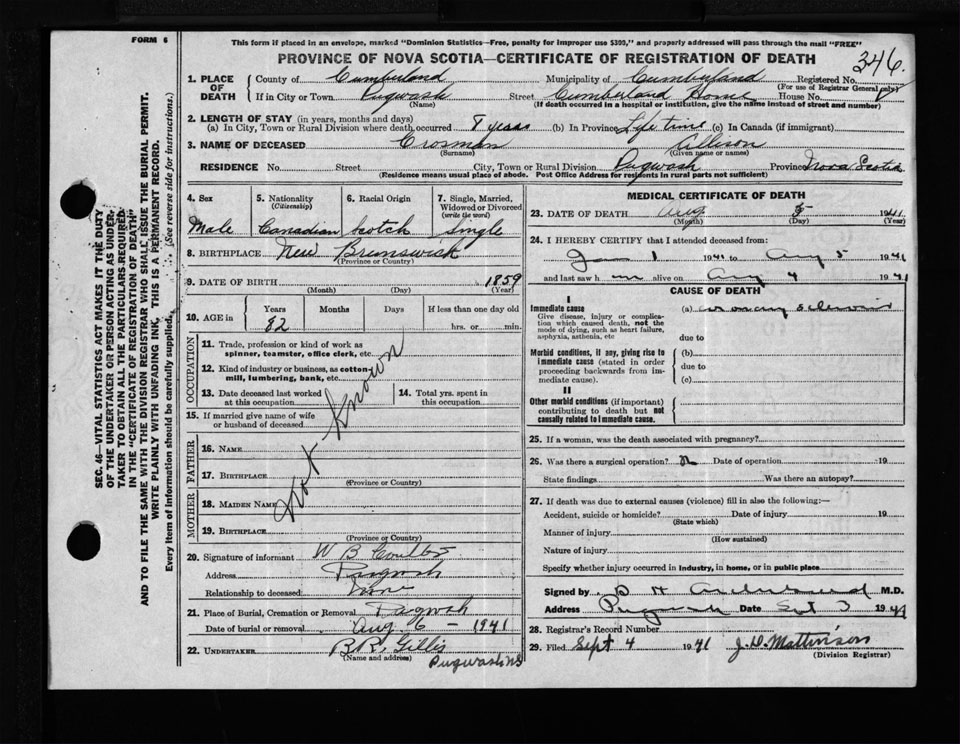 FORM 6
This form if placed in an envelope, marked "Dominion Statistics—Free, penalty for improper use $300," and properly addressed will pass through the mail "FREE"
PROVINCE OF NOVA SCOTIA—CERTIFICATE OF REGISTRATION OF DEATH
346.
1. PLACE OF DEATH
County of Cumberland Municipality of Cumberland Registered No.
(For use of Registrar General only)
If in City or Town Pugwash Street Cumberland Home House No.
(Name) (If death occurred in a hospital or institution, give the name instead of street and number)
2. LENGTH OF STAY (in years, months and days)
(a) In City, Town or Rural Division where death occurred 8 years (b) In Province Life time (c) In Canada (if immigrant)
3. NAME OF DECEASED Crosman Allison
(Surname) (Given name or names)
RESIDENCE No. Street City, Town or Rural Division Pugwash Province Nova Scotia
(Residence means usual place of abode. Post Office Address for residents in rural parts not sufficient)
4. Sex 5. Nationality (Citizenship) 6. Racial Origin 7. Single, Married, Widowed or Divorced (write the word)
Male Canadian Scotch Single
8. BIRTHPLACE New Brunswick
(Province or Country)
9. DATE OF BIRTH 1859
(Month) (Day) (Year)
10. AGE in Years Months Days If less than one day old
82 hrs. or min.
OCCUPATION
11. Trade, profession or kind of work as spinner, teamster, office clerk, etc.
12. Kind of industry or business, as cotton-mill, lumbering, bank, etc.
13. Date deceased last worked at this occupation 14. Total yrs. spent in this occupation
15. If married give name of wife or husband of deceased
Not Known
FATHER
16. Name
17. Birthplace
(Province or Country)
MOTHER
18. Maiden Name
19. Birthplace
(Province or Country)
20. Signature of informant W B
Address Pugwash
Relationship to deceased none
21. Place of Burial, Cremation or Removal Pugwash
Date of burial or removal Aug 6 - 1941
22. Undertaker B.R. Gillis
(Name and address) Pugwash N.S
MEDICAL CERTIFICATE OF DEATH
23. DATE OF DEATH Aug 5 1941
(Month) (Day) (Year)
24. I HEREBY CERTIFY that I attended deceased from:
Jan 1 1941 to Aug 5 1941
and last saw him alive on Aug 4 1941
CAUSE OF DEATH
I
Immediate cause (a)
Give disease, injury or complication which caused death, not the mode of dying, such as heart failure, asphyxia, asthenia, etc
due to
Morbid conditions, if any, giving rise to immediate cause (stated in order proceeding backwards from immediate cause).
(b)
due to
(c)
II
Other morbid conditions (if important) contributing to death but not causally related to immediate cause.
25. If a woman, was the death associated with pregnancy?
26. Was there a surgical operation? Date of operation 19
State findings Was there an autopsy?
27. If death was due to external causes (violence) fill in also the following:—
Accident, suicide or homicide? Date of injury 19
(State which)
Manner of injury
(How sustained)
Nature of injury
Specify whether injury occurred in industry, in home, or in public place
Signed by M.D.
Address Pugwash Date Sept 3 1941
28. Registrar's Record Number
29. Filed Sept 4 1941 J. D. Mattinson
(Division Registrar)
SEC. 46—VITAL STATISTICS ACT MAKES IT THE DUTY
OF THE UNDERTAKER OR PERSON ACTING AS UNDER-
TAKER TO OBTAIN ALL THE PARTICULARS REQUIRED
IN THE "CERTIFICATE OF REGISTRATION OF DEATH"
AND TO FILE THE SAME WITH THE DIVISION REGISTRAR WHO SHALL ISSUE THE BURIAL PERMIT.
WRITE PLAINLY WITH UNFADING INK, THIS IS A PERMANENT RECORD.
Every item of information should be carefully supplied. (See reverse side for instructions.)